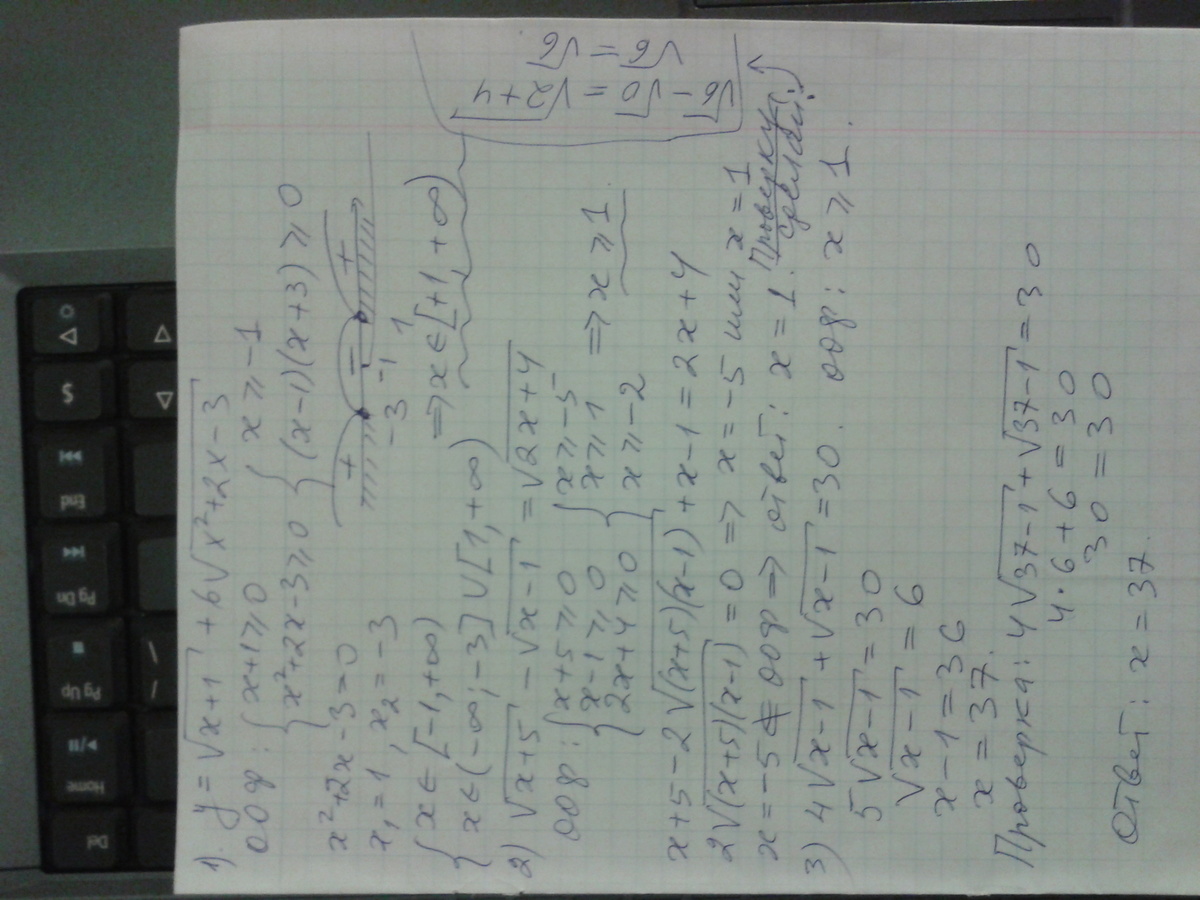 1). y = √(x+1) + 6√(x²+2x-3)
ООФ: { x+1 ≥ 0 { x ≥ -1
x²+2x-3 ≥ 0 { (x-1)(x+3) ≥ 0
x²+2x-3=0
x₁=1, x₂=-3
+ - +
-3 -1 1
{ x ∈ [-1, +∞)
x ∈ (-∞; -3] ∪ [1, +∞) ⇒ x ∈ [+1, +∞)
2) √(x+5) - √(x-1) = √(2x+4)
ООФ: { x+5 ≥ 0 { x ≥ -5
x-1 ≥ 0 x ≥ 1 ⇒ x ≥ 1
2x+4 ≥ 0 x ≥ -2
x+5-2√((x+5)(x-1)) + x-1 = 2x+4
2√((x+5)(x-1)) = 0 ⇒ x = -5 или x = 1
x = -5 ∉ ООФ ⇒ ответ: x = 1. Проверку сделай!
√6 - √0 = √(2+4)
√6 = √6
3) 4√(x-1) + √(x-1) = 30. ООФ: x ≥ 1.
5√(x-1) = 30
√(x-1) = 6
x-1 = 36
x = 37.
Проверка: 4√(37-1) + √(37-1) = 30
4·6+6 = 30
30 = 30
Ответ: x = 37.
Del
Home
Pg Up
Pg Dn
End
$